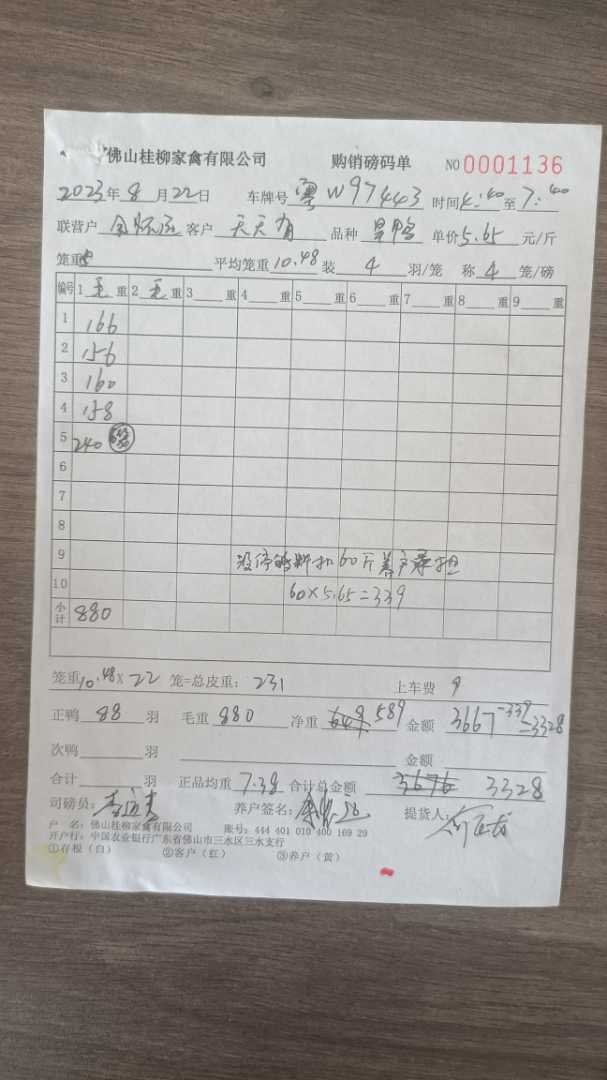 佛山桂柳家禽有限公司 购销磅码单 NO 0001136
2023年8月22日 车牌号 粤W97443 时间 :40 至 7:40
联营户 客户 天天有 品种 单价 5.65 元/斤
笼重 平均笼重 10.48 装 4 羽/笼 称 4 笼/磅
编号 1 毛 重 2 毛 重 3 重 4 重 5 重 6 重 7 重 8 重 9 重
1 166
2 156
3 160
4 158
5 240
6
7
8
9 没停料扣60斤养户承担
10 60×5.65=339
小计 880
笼重 10.48 × 22 笼=总皮重: 231 上车费 9
正鸭 88 羽 毛重 880 净重 649 589 金额 3667-339=3328
次鸭 羽 金额
合计 羽 正品均重 7.38 合计总金额 3676 3328
司磅员: 养户签名: 提货人:
户 名: 佛山桂柳家禽有限公司 账号: 444 401 010 400 169 29
开户行: 中国农业银行广东省佛山市三水区三水支行
①存根(白) ②客户(红) ③养户(黄)